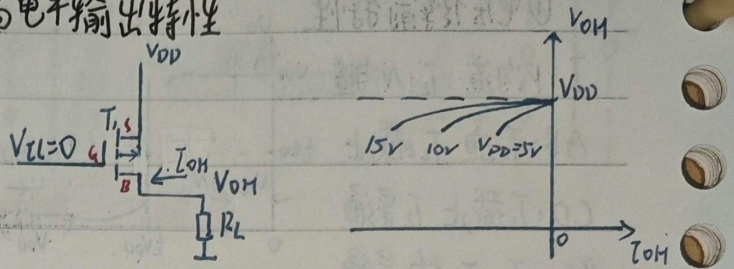 电平输出特性
VDD
VIL=0
T1
S
G
B
IOH
VOH
RL
VOH
VDD
15V
10V
VDD=5V
0
IOH